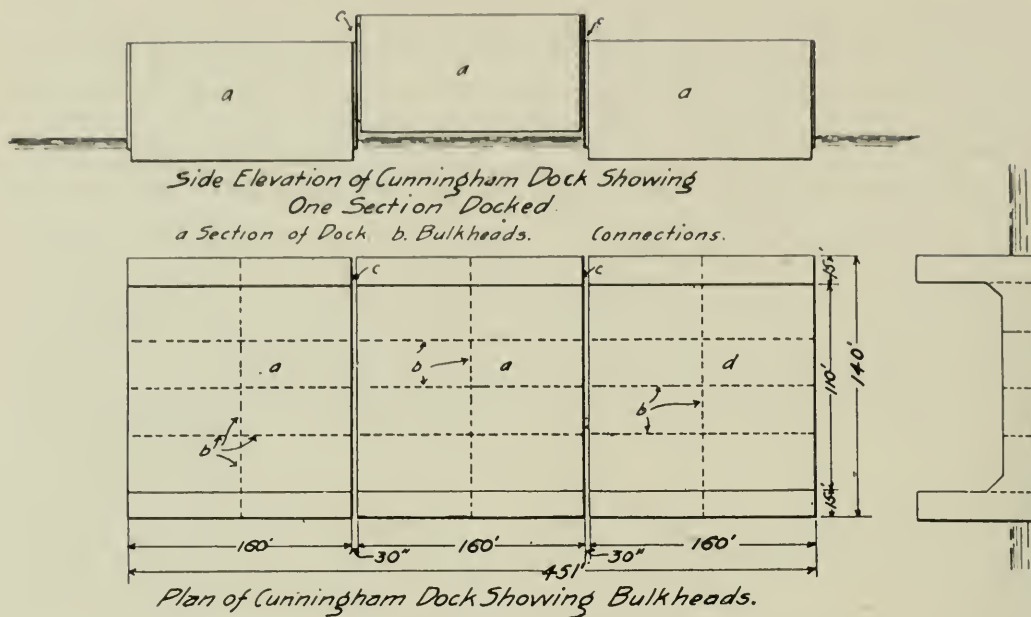 c
c
a
a
a
Side Elevation of Cunningham Dock Showing
One Section Docked.
a Section of Dock b. Bulkheads. Connections.
c
c
15'
a
b
a
d
b
b
110'
140'
15'
160'
160'
160'
30"
30"
451'
Plan of Cunningham Dock Showing Bulkheads.